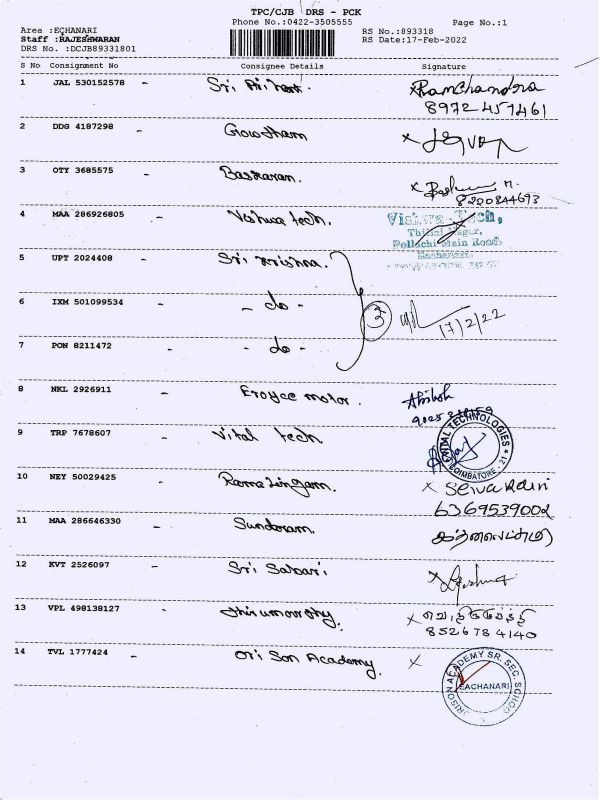 TPC/CJB DRS - PCK
Phone No.:0422-3505555
Page No.:1
Area :ECHANARI
Staff :RAJESHWARAN
DRS No. :DCJB89331801
RS No.:893318
RS Date:17-Feb-2022
S No Consignment No Consignee Details Signature
1 JAL 530152578 - Sri
RamChandra
8972457461
2 DDG 4187298 - Gowtham x
3 OTY 3685575 - Baskaran. x
8220844693
4 MAA 286926805 - Vishwa tech.
Vishwa Tech,
Pollachi Main Road,
5 UPT 2024408 - Sri Krishna.
6 IXM 501099534 - do -
3 17/2/22
7 PON 8211472 - - do -
8 NKL 2926911 - Eroyce motor.
9 TRP 7678607 - Vital tech
VITAL TECHNOLOGIES
COIMBATORE - 21
10 NEY 50029425 - Ramalingam. x Selvarani
6369539002
11 MAA 286646330 - Sundaram.
12 KVT 2526097 - Sri Sabari x
13 VPL 498138127 - thirumoorthy. x
8526784140
14 TVL 1777424 - Ori Son Academy. x
ORISON ACADEMY SR. SEC. SCHOOL
EACHANARI